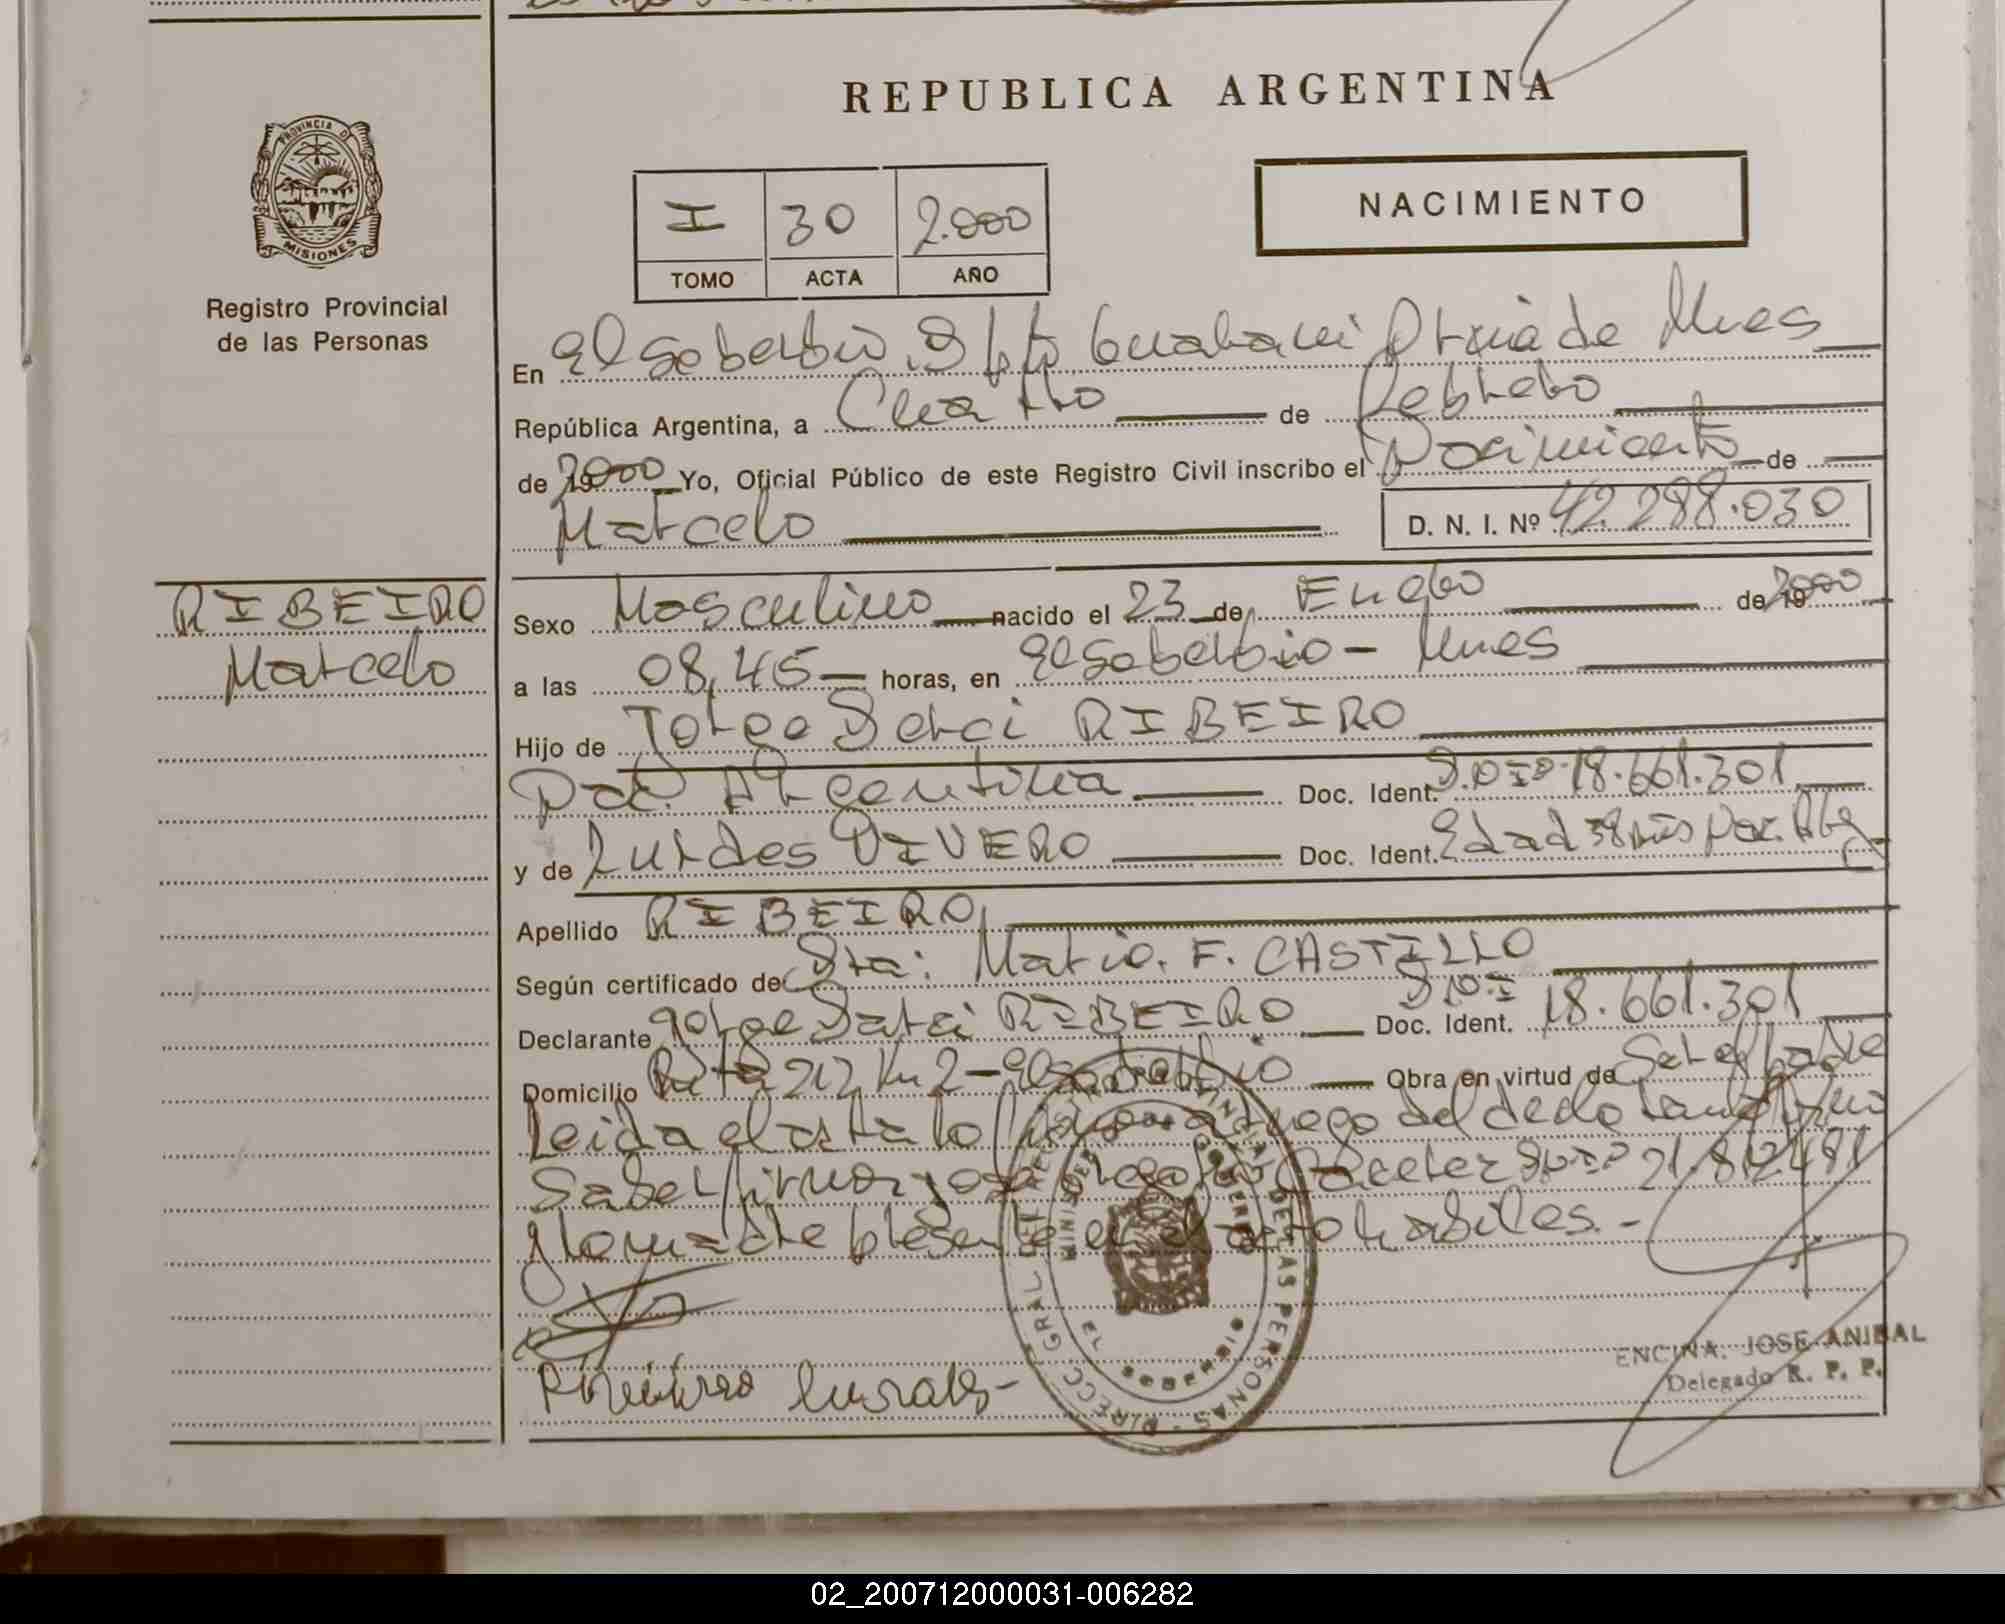 REPUBLICA ARGENTINA
PROVINCIA D
MISIONES
Registro Provincial
de las Personas
I 30 2.000
TOMO ACTA AÑO
NACIMIENTO
En El Soberbio, Dpto Guarani Pcia de Mnes
República Argentina, a Cuatro de Febrero
de 2000 Yo, Oficial Público de este Registro Civil inscribo el Nacimiento de
Marcelo D. N. I. Nº 42.298.030
RIBEIRO
Marcelo
Sexo Masculino nacido el 23 de Enero de 2000
a las 08,45 horas, en El Soberbio - Mnes
Hijo de Jorge Derci RIBEIRO
Nac. Argentina Doc. Ident. DNI Nº 18.661.301
y de Lurdes RIVERO Doc. Ident. Edad 38 años Nac. Arg
Apellido RIBEIRO
Según certificado de Sra: Maria. F. CASTILLO
Declarante Jorge Darci RIBEIRO Doc. Ident. DNI 18.661.301
Domicilio Ruta 212 Km 2 - El Soberbio Obra en virtud de Ser el padre
Leida el acta lo firma a ruego del declarante
Saber firmar 21.812.481
presente en el acto habiles.-
DIRECC. GRAL. DEL REGISTRO PROVINCIAL DE LAS PERSONAS
SOBERBIO
ENCINA, JOSE ANIBAL
Delegado R. P. P.
02_200712000031-006282